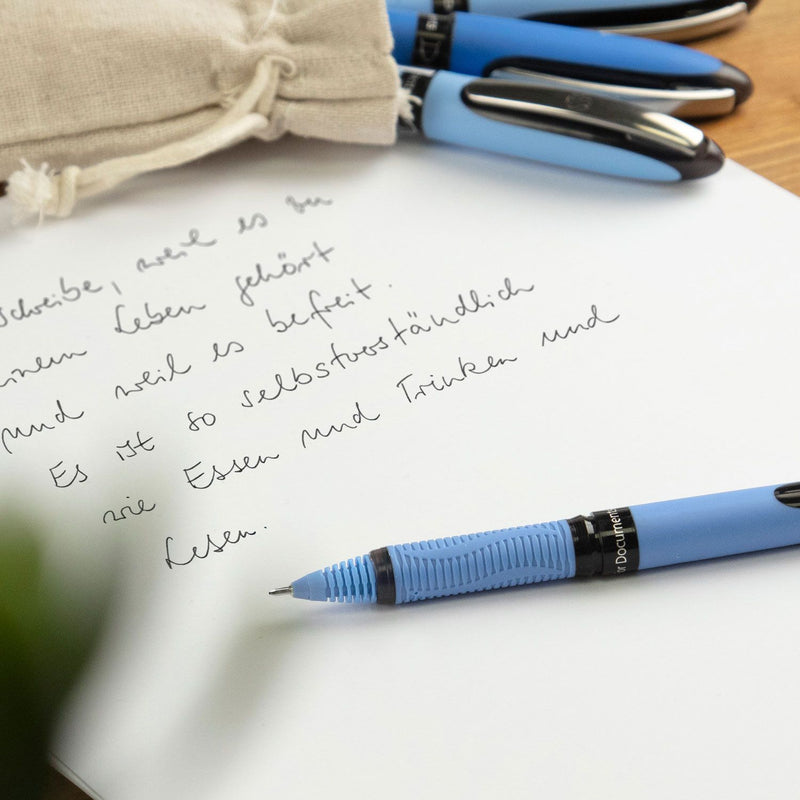 schreibe, weil es zu
einem Leben gehört
und weil es befreit.
Es ist so selbstverständlich
wie Essen und Trinken und
Lesen.
or Document